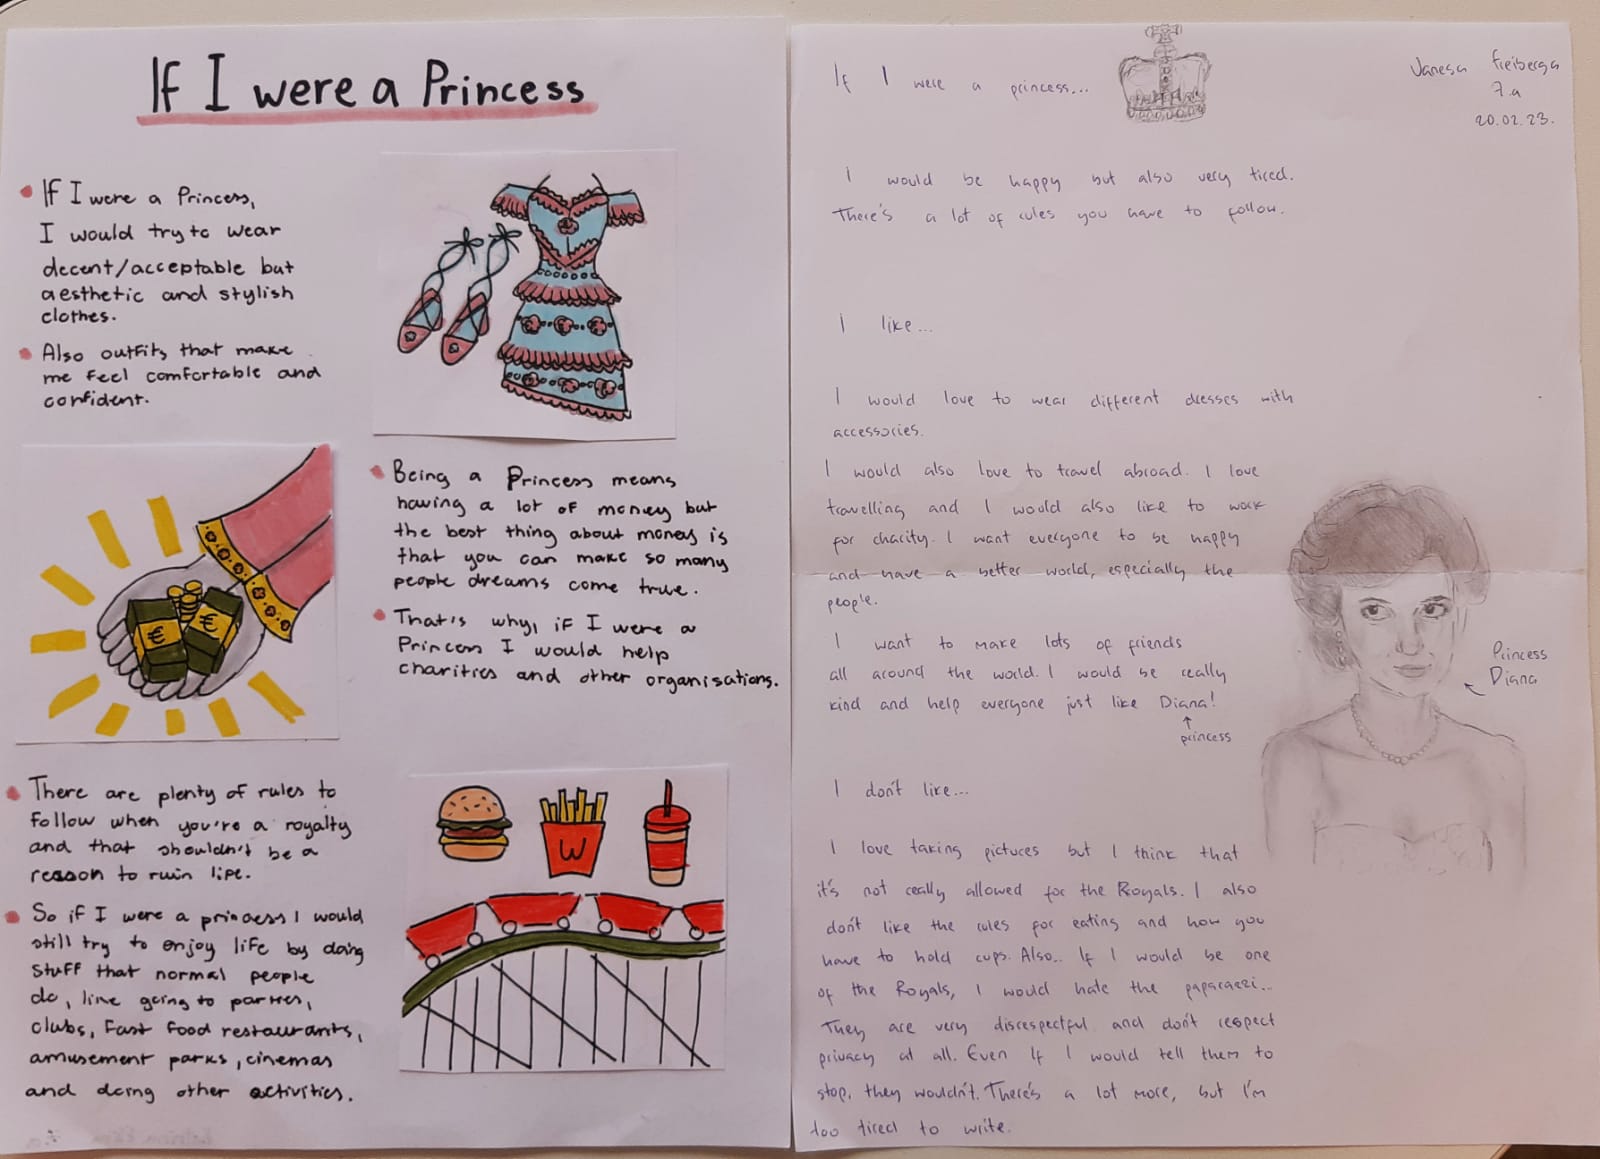 If I were a Princess
If I were a Princess,
I would try to wear
decent/acceptable but
aesthetic and stylish
clothes.
Also outfits that make
me feel comfortable and
confident.
€ €
Being a Princess means
having a lot of money but
the best thing about money is
that you can make so many
people dreams come true.
That's why, if I were a
Princess I would help
charities and other organisations.
There are plenty of rules to
follow when you're a royalty
and that shouldn't be a
reason to ruin life.
So if I were a princess I would
still try to enjoy life by doing
stuff that normal people
do, like going to parties,
clubs, fast food restaurants,
amusement parks, cinemas
and doing other activities.
W
If I were a princess...
Vanesa Freiberga
7.a
20.02.23.
I would be happy but also very tired.
There's a lot of rules you have to follow.
I like...
I would love to wear different dresses with
accessories.
I would also love to travel abroad. I love
travelling and I would also like to work
for charity. I want everyone to be happy
and have a better world, especially the
people.
I want to make lots of friends
all around the world. I would be really
kind and help everyone just like Diana!
princess
Princess
Diana
I don't like...
I love taking pictures but I think that
it's not really allowed for the Royals. I also
don't like the rules for eating and how you
have to hold cups. Also.. If I would be one
of the Royals, I would hate the paparazzi...
They are very disrespectful and don't respect
privacy at all. Even If I would tell them to
stop, they wouldn't. There's a lot more, but I'm
too tired to write.